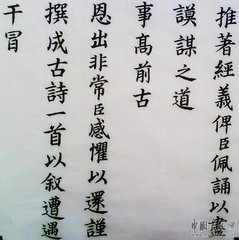 推著經義俾臣佩誦以盡
謨謀之道
事高前古
恩出非常臣感懼以還謹
撰成古詩一首以敘遭遇
干冒